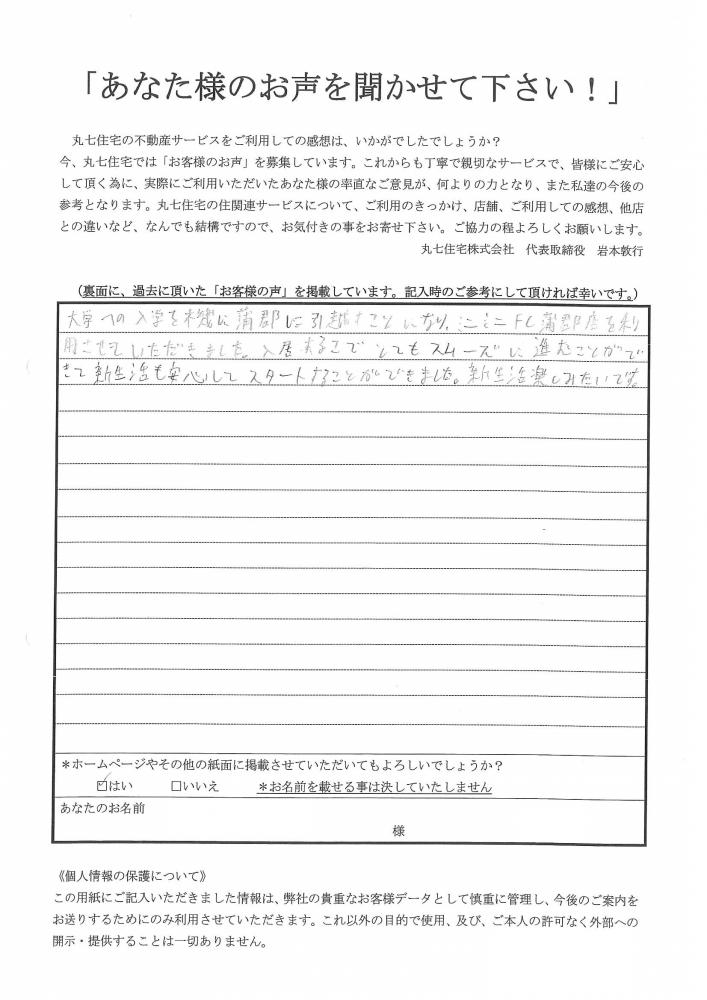 「あなた様のお声を聞かせて下さい！」
丸七住宅の不動産サービスをご利用しての感想は、いかがでしたでしょうか？
今、丸七住宅では「お客様のお声」を募集しています。これからも丁寧で親切なサービスで、皆様にご安心
して頂く為に、実際にご利用いただいたあなた様の率直なご意見が、何よりの力となり、また私達の今後の
参考となります。丸七住宅の住関連サービスについて、ご利用のきっかけ、店舗、ご利用しての感想、他店
との違いなど、なんでも結構ですので、お気付きの事をお寄せ下さい。ご協力の程よろしくお願いします。
丸七住宅株式会社　代表取締役　岩本敦行
（裏面に、過去に頂いた「お客様の声」を掲載しています。記入時のご参考にして頂ければ幸いです。）
大学への入学を機に蒲郡に引越すことになり、ミニミニFC蒲郡店を利
用させていただきました。入居するまでとてもスムーズに進むことがで
きて新生活も安心してスタートすることができました。新生活楽しみたいです。
＊ホームページやその他の紙面に掲載させていただいてもよろしいでしょうか？
☑はい　□いいえ　＊お名前を載せる事は決していたしません
あなたのお名前
様
《個人情報の保護について》
この用紙にご記入いただきました情報は、弊社の貴重なお客様データとして慎重に管理し、今後のご案内を
お送りするためにのみ利用させていただきます。これ以外の目的で使用、及び、ご本人の許可なく外部への
開示・提供することは一切ありません。